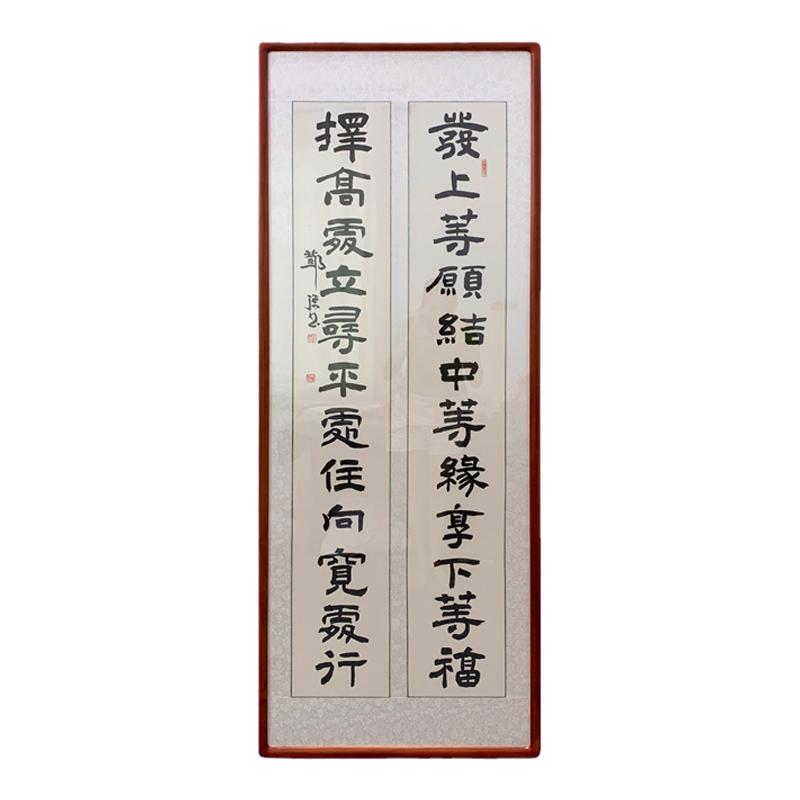 發上等願結中等緣享下等福
擇高處立尋平處住向寬處行
鄭